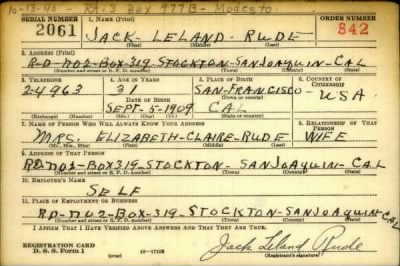 10-13-42 - Rt-3 Box 977B - Modesto
SERIAL NUMBER 1. NAME (Print) ORDER NUMBER
2061 JACK - LELAND - RUDE 842
(First) (Middle) (Last)
2. ADDRESS (Print)
RD - NO2 - BOX - 319 STOCKTON - SAN JOAQUIN - CAL
(Number and street or R. F. D. number) (Town) (County) (State)
3. TELEPHONE 4. AGE IN YEARS 5. PLACE OF BIRTH 6. COUNTRY OF CITIZENSHIP
2-4963 31 SAN-FRANCISCO - USA
DATE OF BIRTH (Town or county)
SEPT-5-1909 CAL
(Mo.) (Day) (Yr.) (State or country)
7. NAME OF PERSON WHO WILL ALWAYS KNOW YOUR ADDRESS 8. RELATIONSHIP OF THAT PERSON
MRS. ELIZABETH - CLAIRE - RUDE WIFE
(Mr., Mrs., Miss) (First) (Middle) (Last)
9. ADDRESS OF THAT PERSON
RD NO2 - BOX 319 - STOCKTON - SAN JOAQUIN - CAL
(Number and street or R. F. D. number) (Town) (County) (State)
10. EMPLOYER'S NAME
SELF
11. PLACE OF EMPLOYMENT OR BUSINESS
RD - NO2 - BOX - 319 - STOCKTON - SAN JOAQUIN - CAL
(Number and street or R. F. D. number) (Town) (County) (State)
I AFFIRM THAT I HAVE VERIFIED ABOVE ANSWERS AND THAT THEY ARE TRUE.
REGISTRATION CARD
D. S. S. Form 1 Jack Leland Rude
(Registrant's signature)